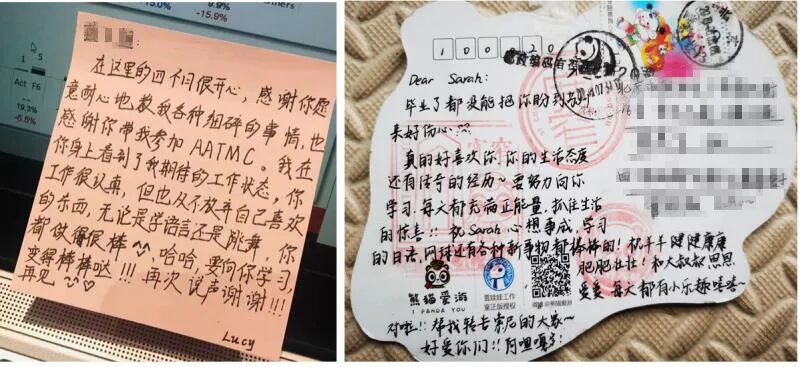 15.0%
-15.9%
9.9%
-6.7%
others
1 5
Act F6
19.3%
-6.6%
在这里的四个月很开心，感谢你愿
意耐心地教我各种细碎的事情，也
感谢你带我参加AATMC。我在
你身上看到了我期待的工作状态，你
工作很认真，但也从不放弃自己喜欢
的东西，无论是学语言还是跳舞，你
都做得很棒^^，哈哈，要向你学习，
变得棒棒哒!!!再次说声谢谢!!!
再见
Lucy
1 0 0 0 2 0
Dear Sarah:
毕业了都没能把你盼到剑
来好伤心
真的好喜欢你，你的生活态度
还有传奇的经历~要努力向你
学习，每天都充满正能量，抓住生活
的惊喜!!祝Sarah心想事成，学习
的日语、网球还有各种新事物都棒棒的!祝牛牛健健康康
肥肥壮壮!和大叔叔恩恩
爱爱每天都有小乐趣嘻嘻~
熊猫爱游
I PANDA YOU
雪娃娃工作
室正版授权
微博@熊猫爱游
对啦!!帮我转告索尼的大家~
好爱你们!!月咀嘎了!